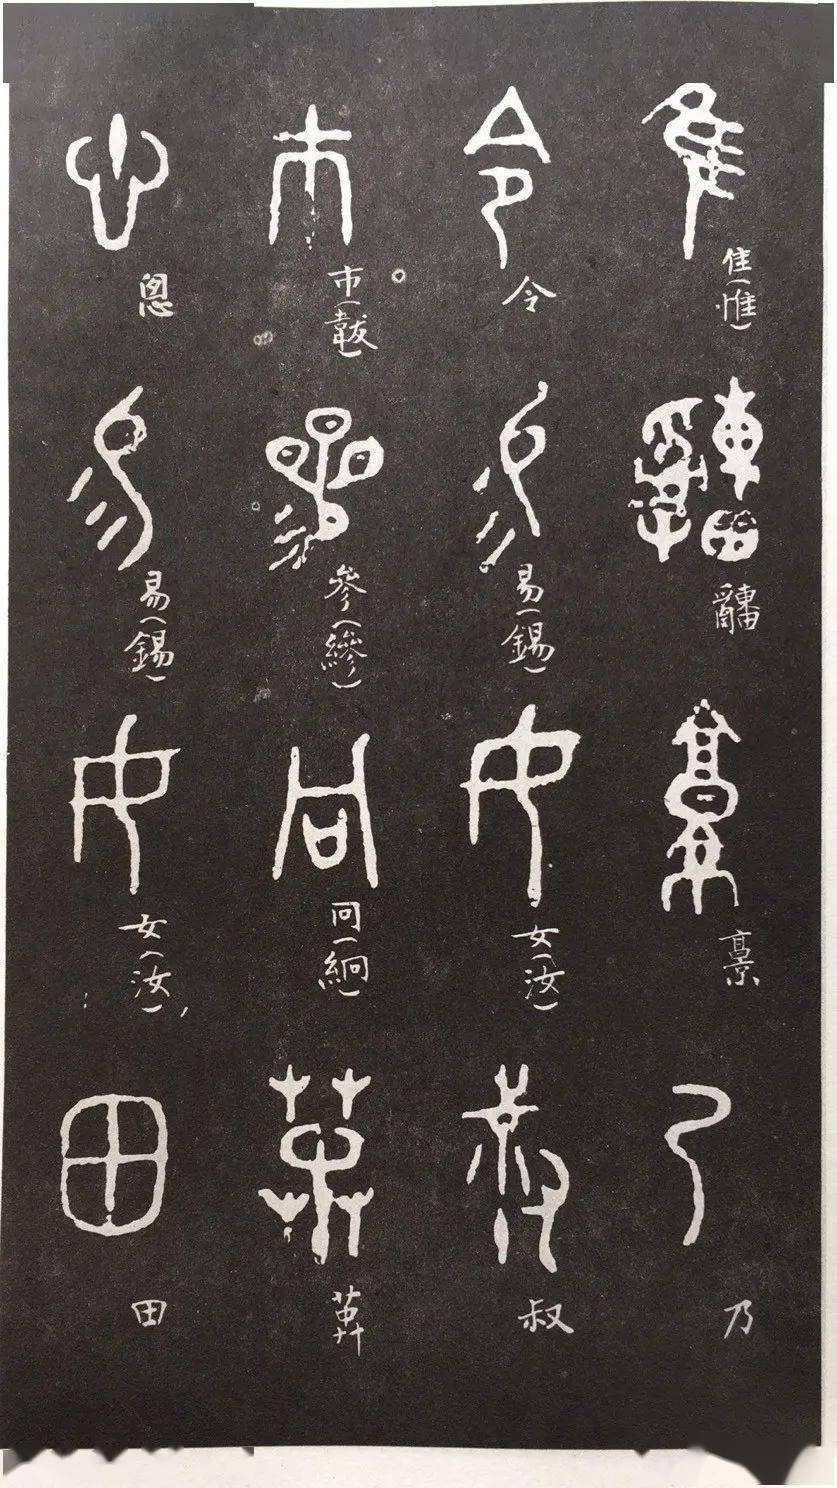 隹(惟) 乃
令 易(錫) 女(汝) 叔
巿(韍) 參(縿) 冋(絅)
悤 易(錫) 女(汝) 田